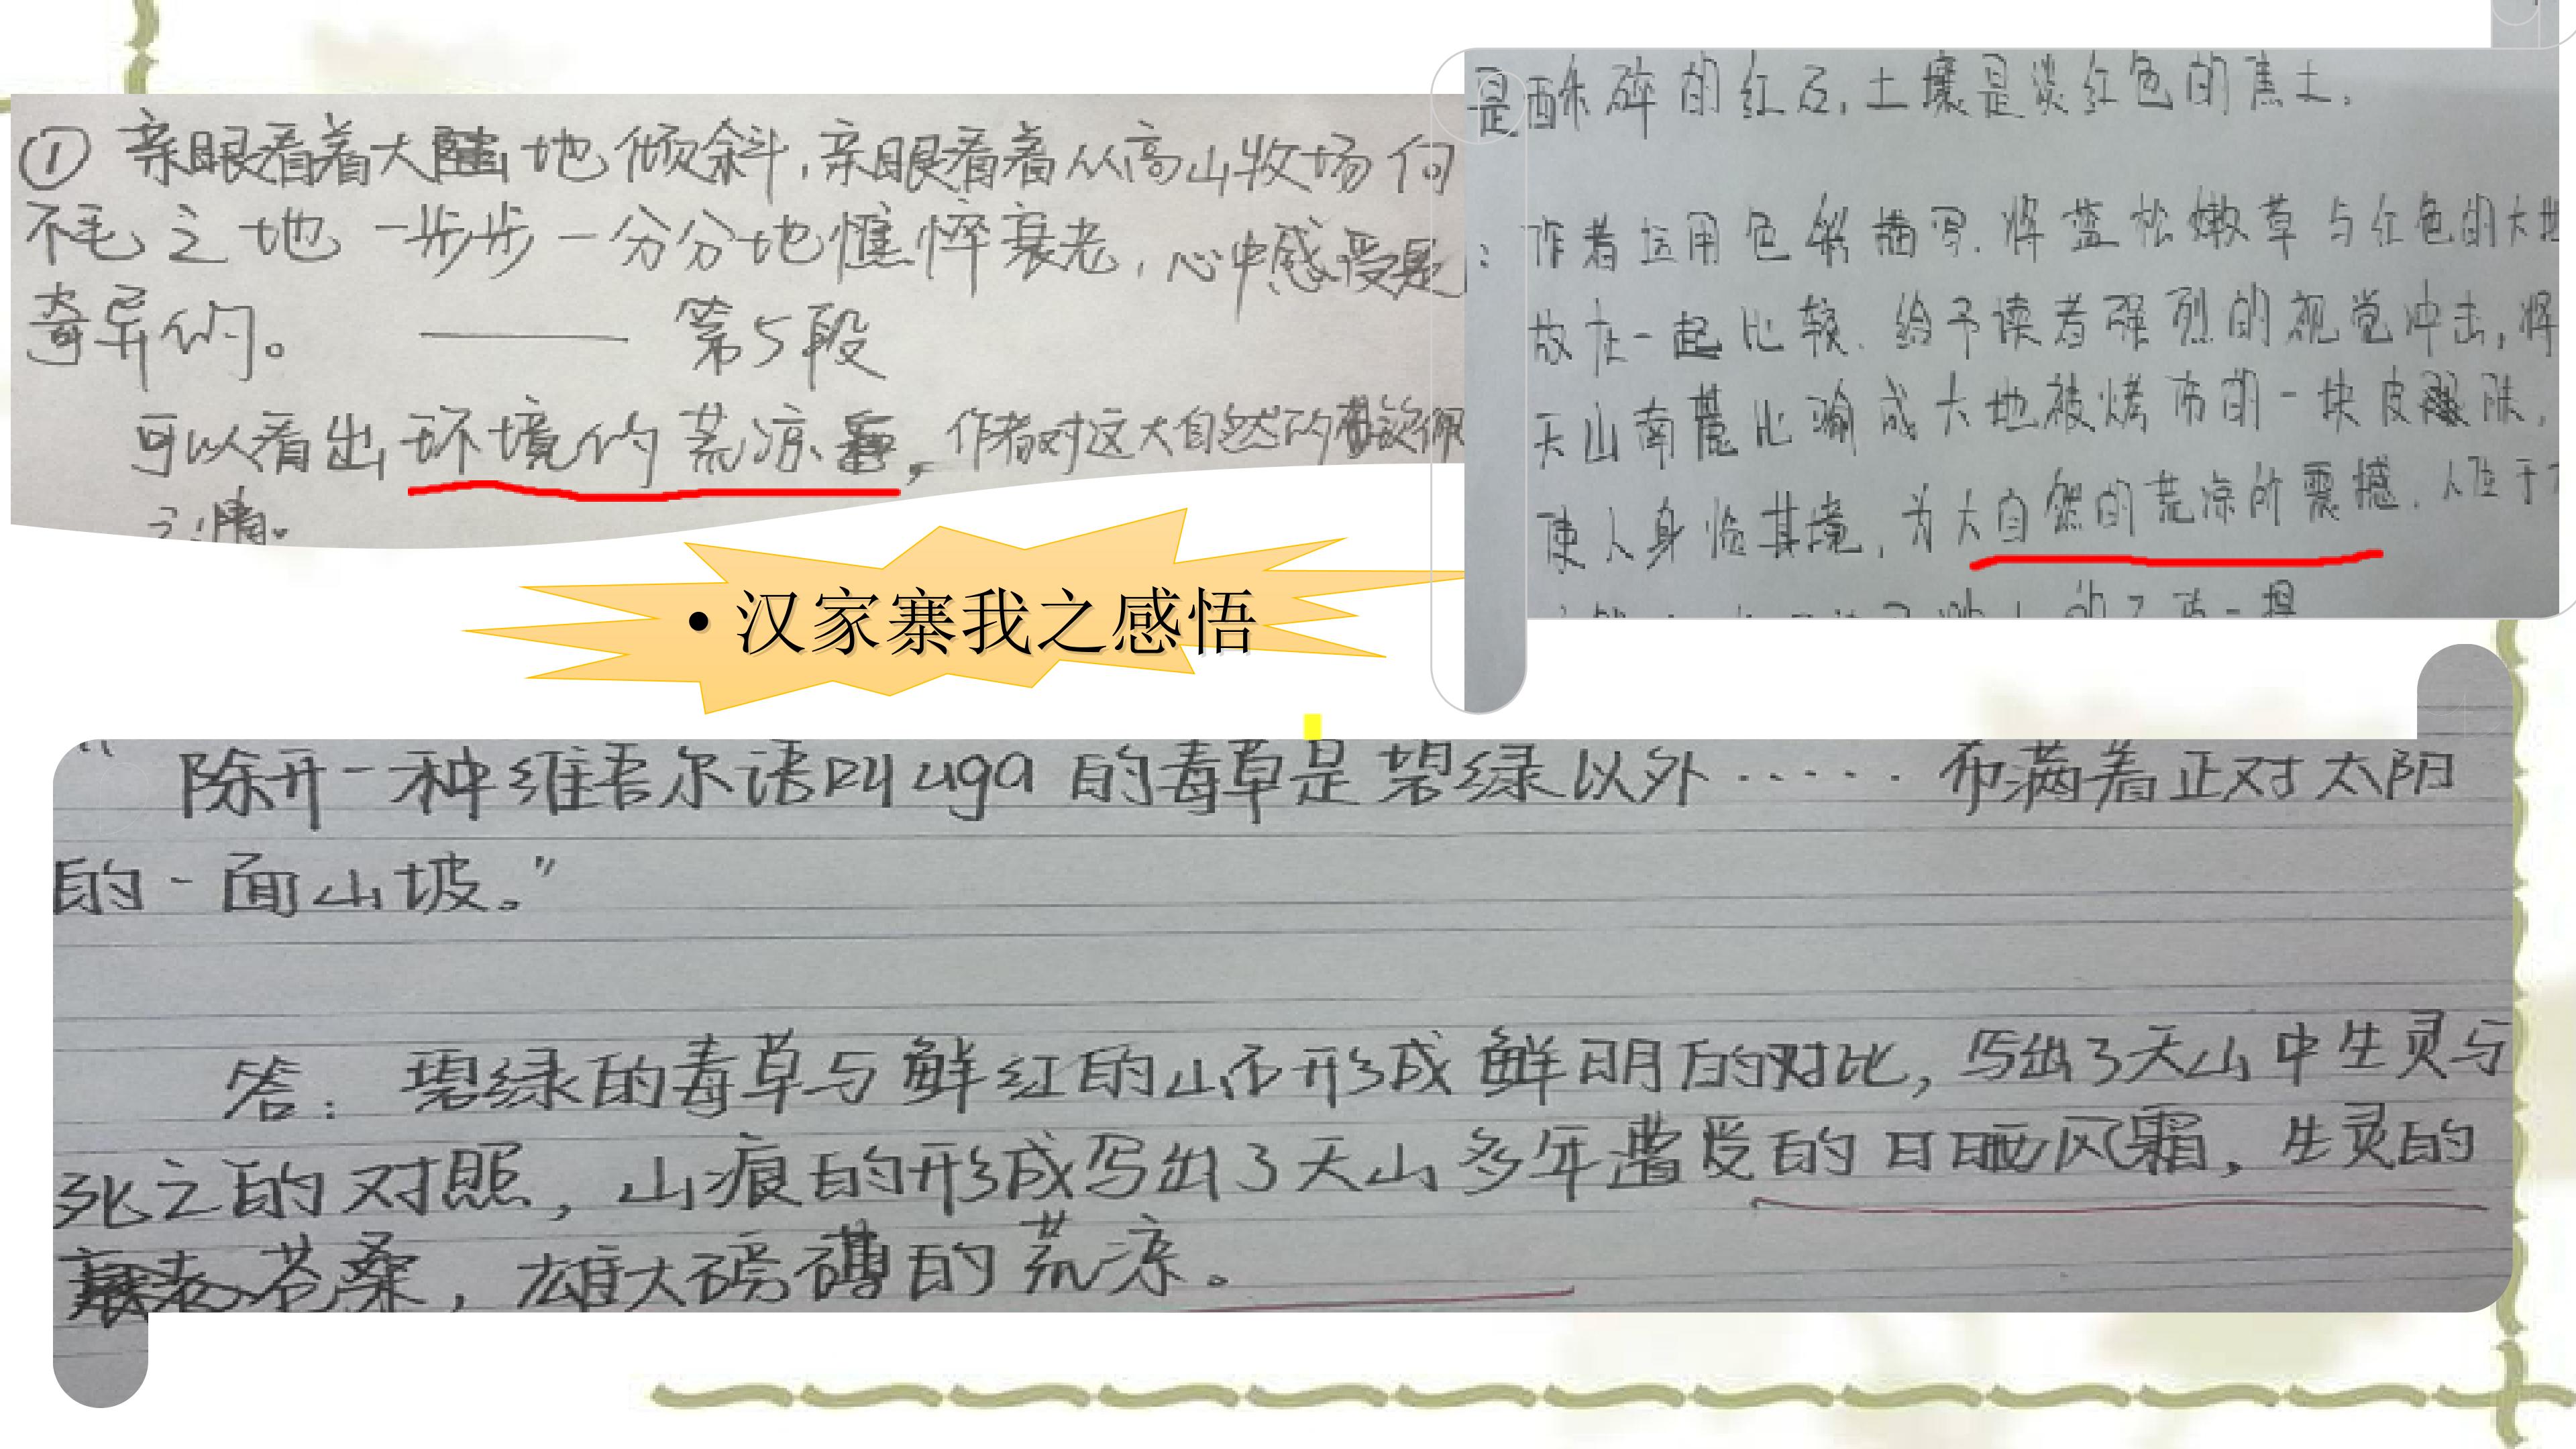 ① 亲眼看着大陆地倾斜，亲眼看着从高山牧场向
不毛之地一步步一分分地憔悴衰老，心中感受是
奇异的。 —— 第5段
可以看出环境的荒凉，作者对这大自然的
之情。
是酥碎的红石，土壤是淡红色的焦土。
：作者运用色彩描写，将蓝松嫩草与红色的大地
放在一起比较，给予读者强烈的视觉冲击，将
天山南麓比喻成大地被烤伤的一块皮肤，
使人身临其境，为大自然的荒凉所震撼，人在于
• 汉家寨我之感悟
除开一种维吾尔语叫uga的毒草是碧绿以外……布满着正对太阳
的一面山坡。”
答：碧绿的毒草与鲜红的山石形成鲜明的对比，写出了天山中生灵与
死之的对照，山痕的形成写出了天山多年遭受的日晒风霜，生灵的
苍桑，雄大磅礴的荒凉。